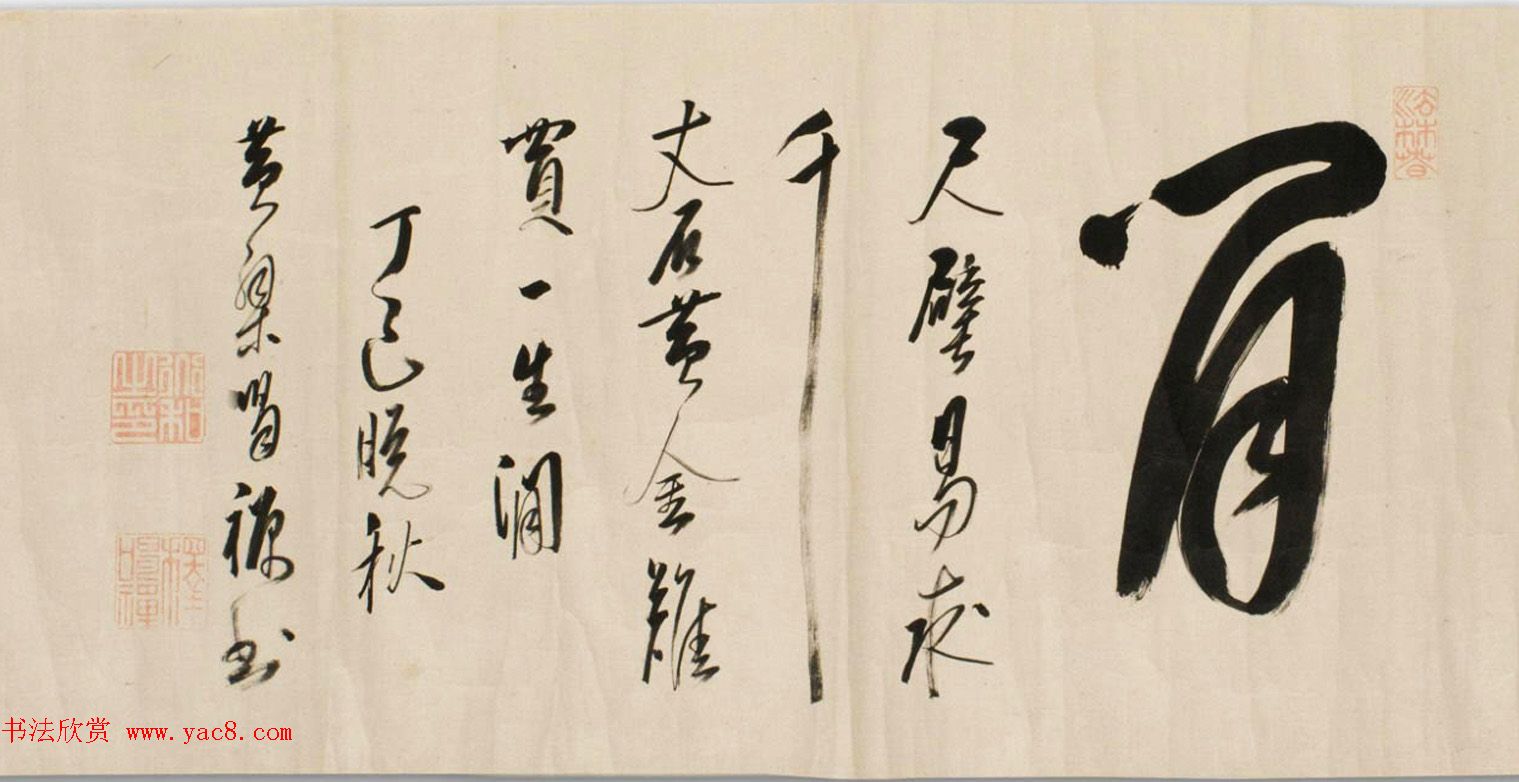 閒
尺璧易求
千
丈石黄金難
買一生閒
丁巳晚秋
黄檗喝禪书
道和之印
书法欣赏 www.yac8.com